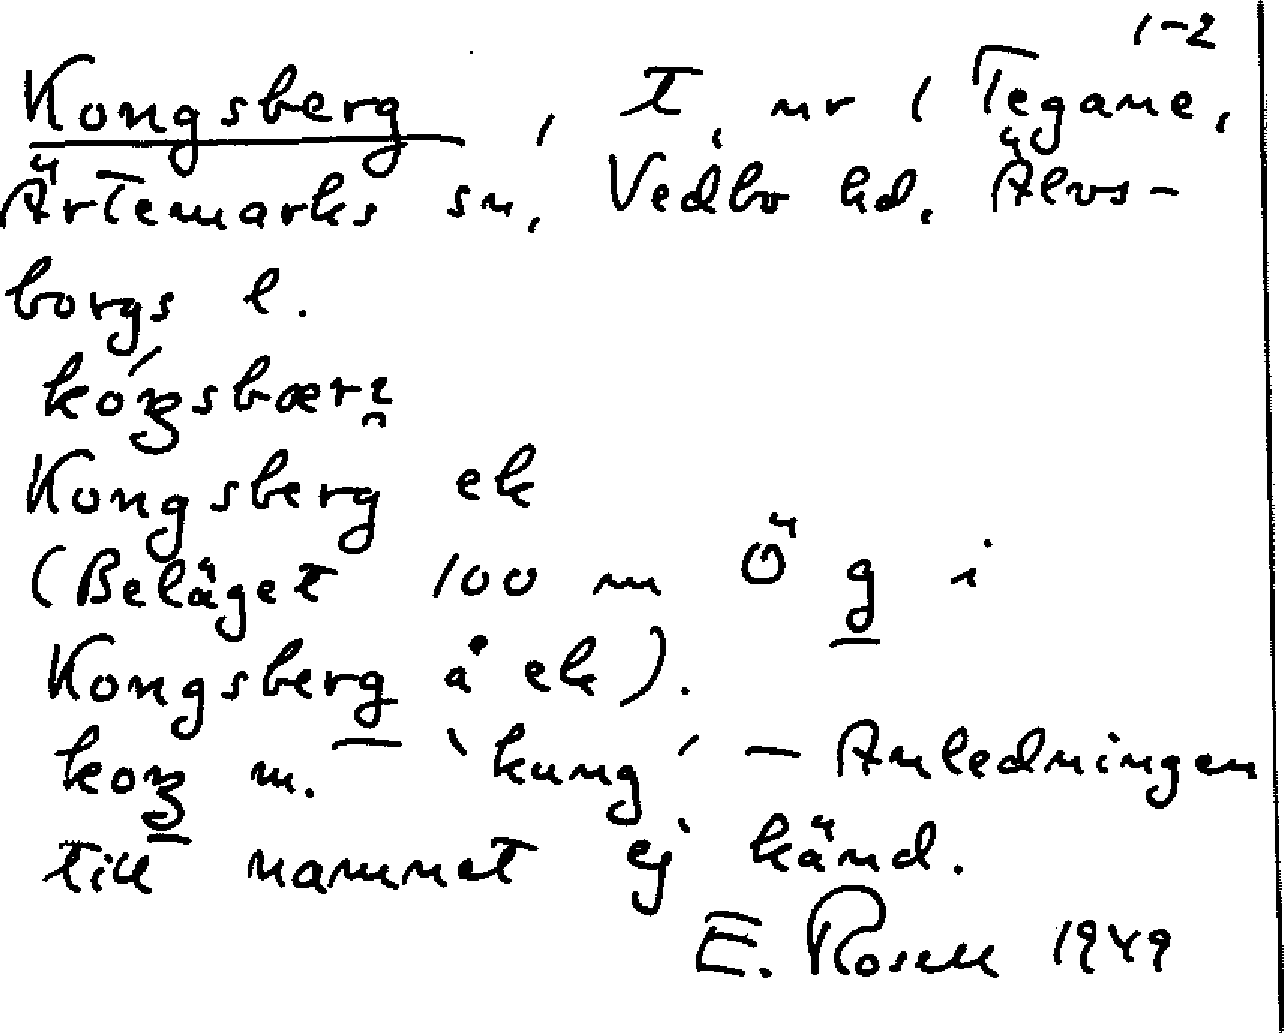 1-2
Kongsberg, t, nr 1 Tegane,
Ärtemarks sn, Vedbo hd. Älvs-
borgs l.
Kongsberg ek
(Beläget 100 m Ö g i
Kongsberg å ek).
m. 'kung' - Anledningen
till namnet ej känd.
E. Rosell 1949